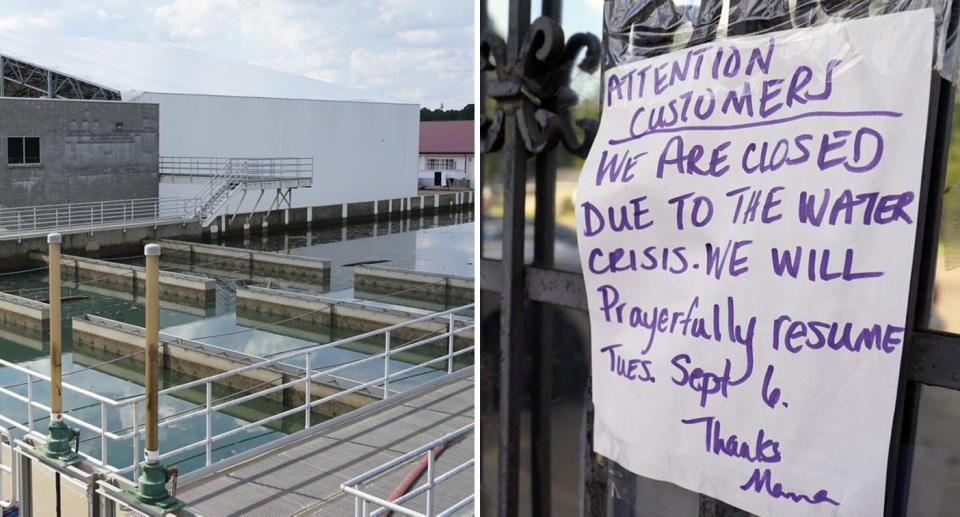 ATTENTION
CUSTOMERS
WE ARE CLOSED
DUE TO THE WATER
CRISIS. WE WILL
Prayerfully resume
TUES. Sept 6.
Thanks
Mama